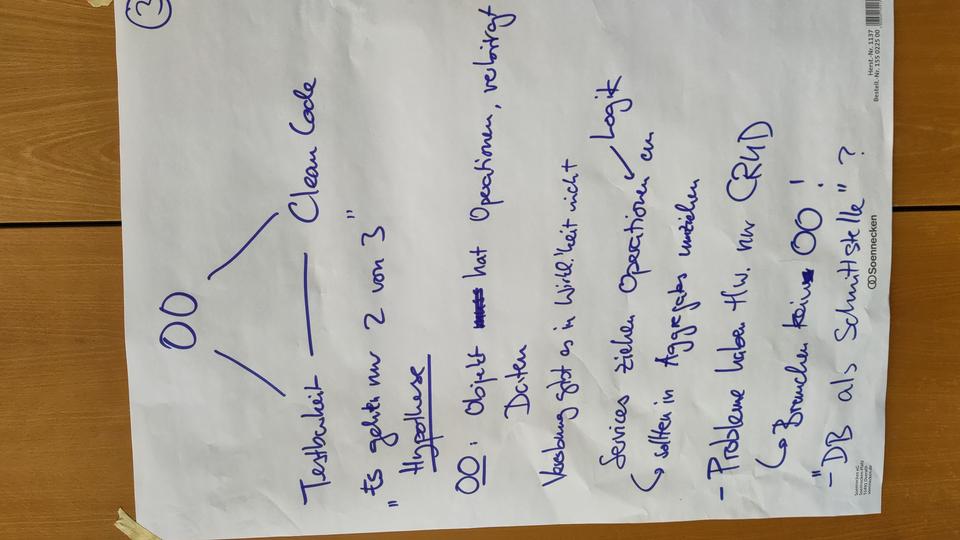 3
OO
Testbarkeit Clean Code
"Es gehen nur 2 von 3"
Hypothese
OO: Objekt hat Operationen, verbirgt
Daten
Vererbung gibt es in Wirklichkeit nicht
Services ziehen Operationen an Logik
↳ sollten in Aggregates umziehen
- Probleme haben tlw. nur CRUD
↳ Brauchen kein OO!
- "DB als Schnittstelle"?
Soennecken
Herst.-Nr. 1137
Bestell.-Nr. 155 0225 00
Soennecken eG
Soennecken-Platz
51491 Overath
soennecken.de